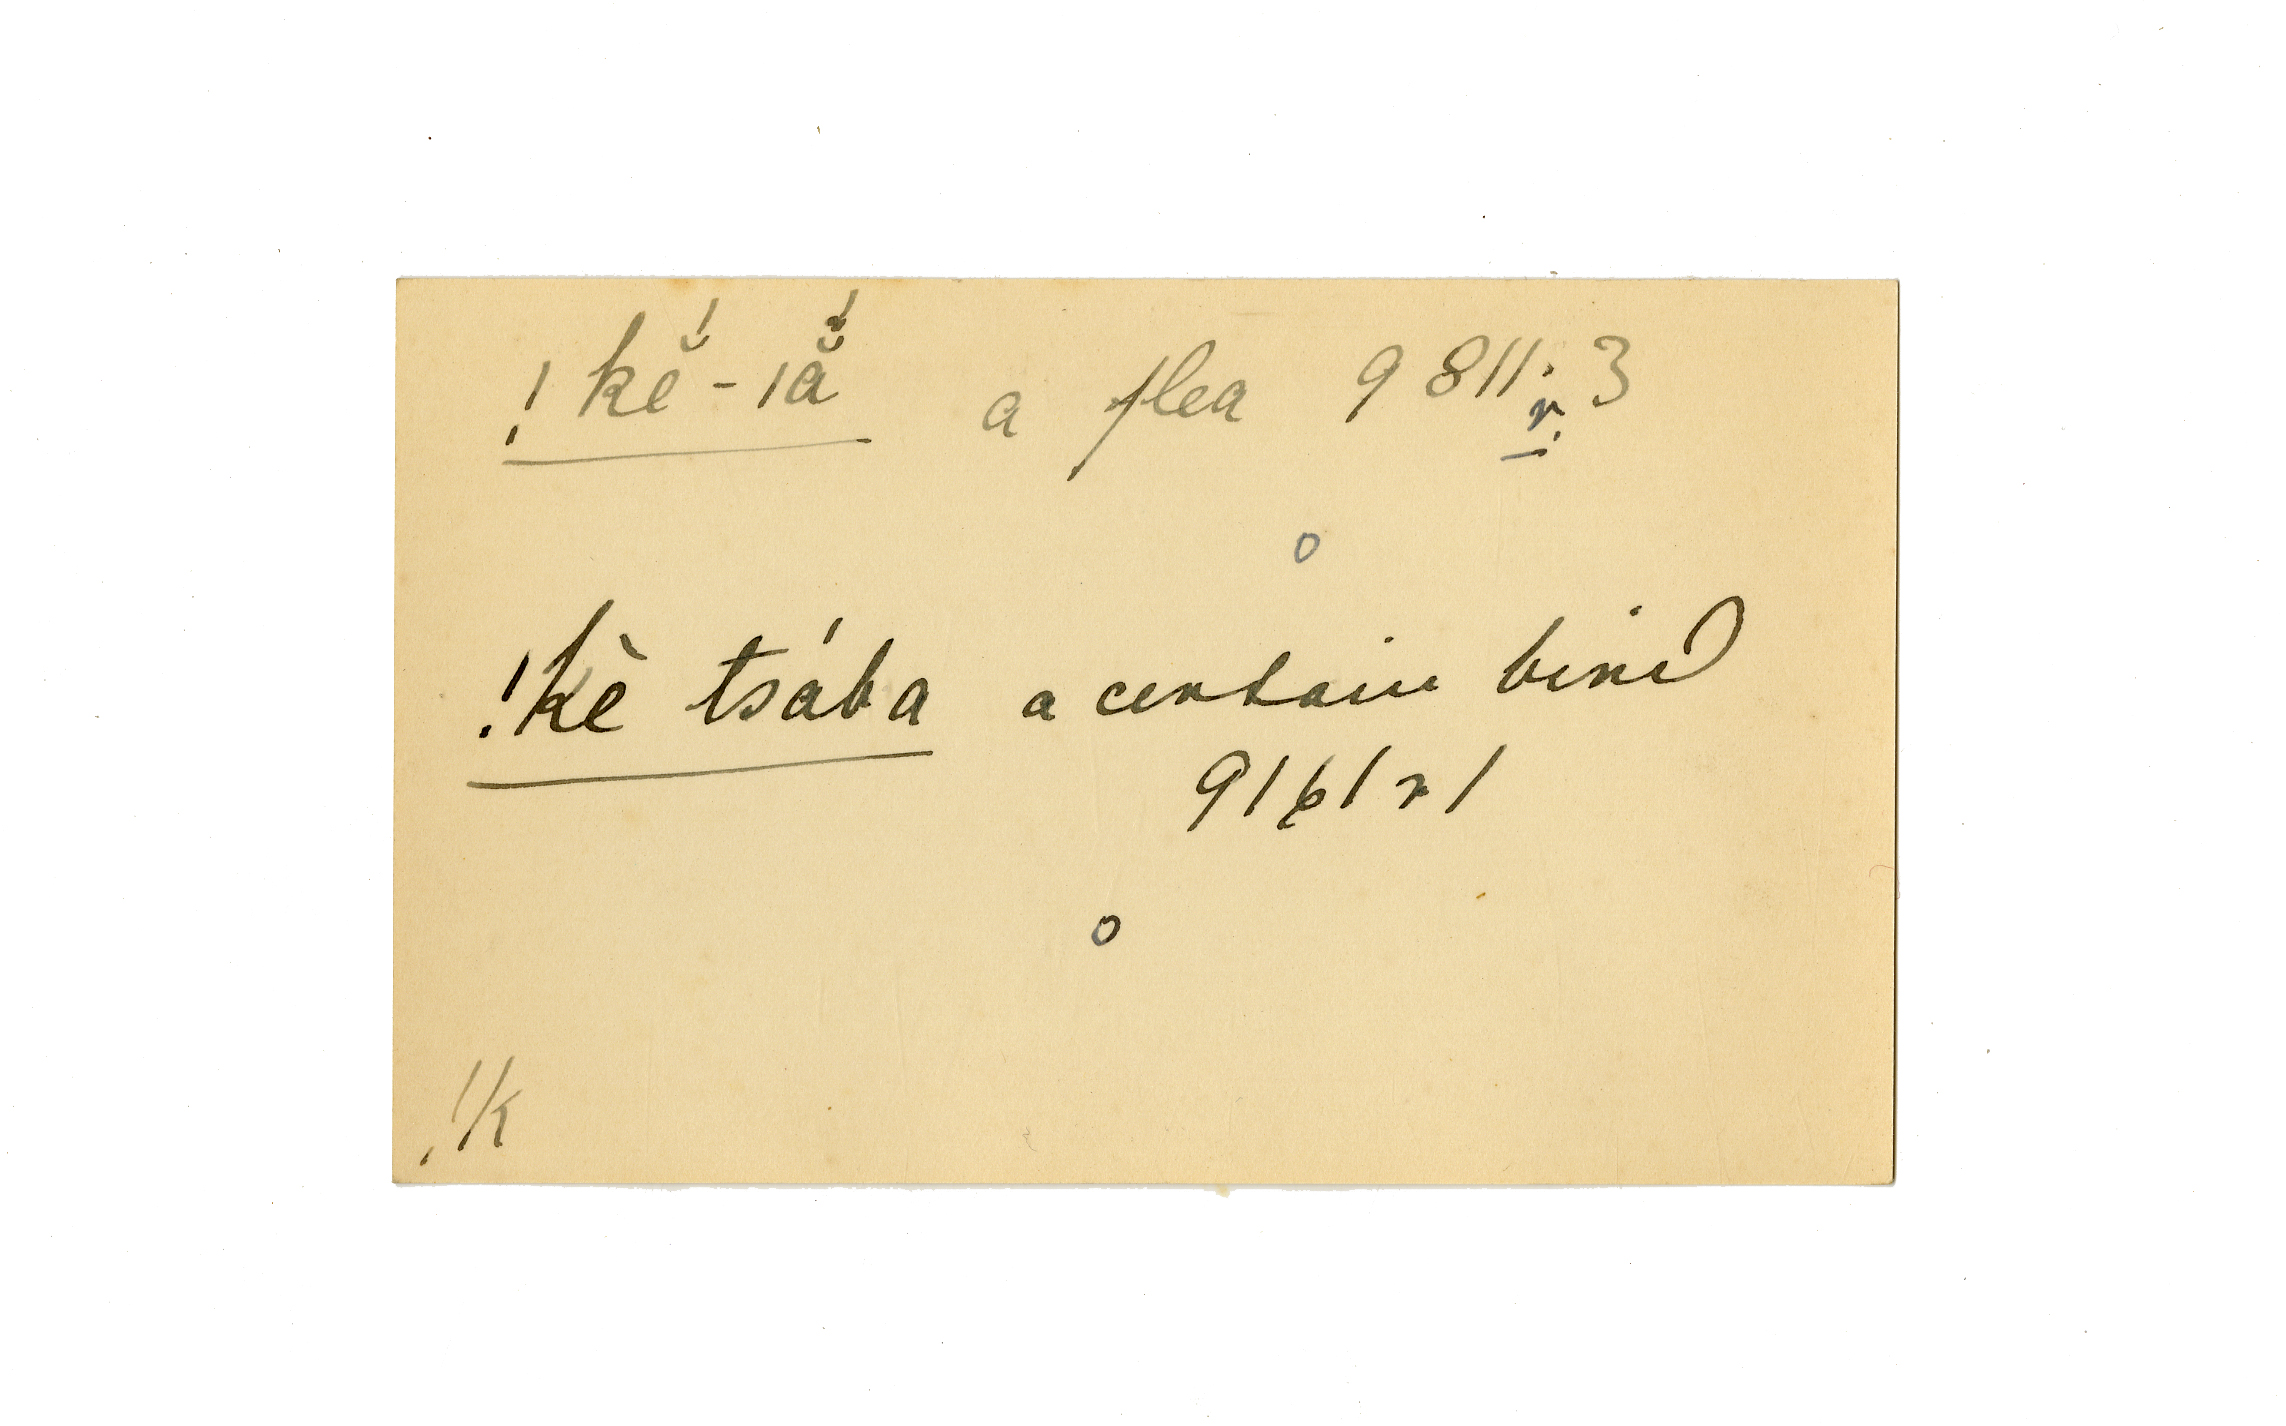 !kĕ́-ıă̈́ a flea 9811; r. 3
o
!kè tsába a certain bird
9161 r 1
o
!k